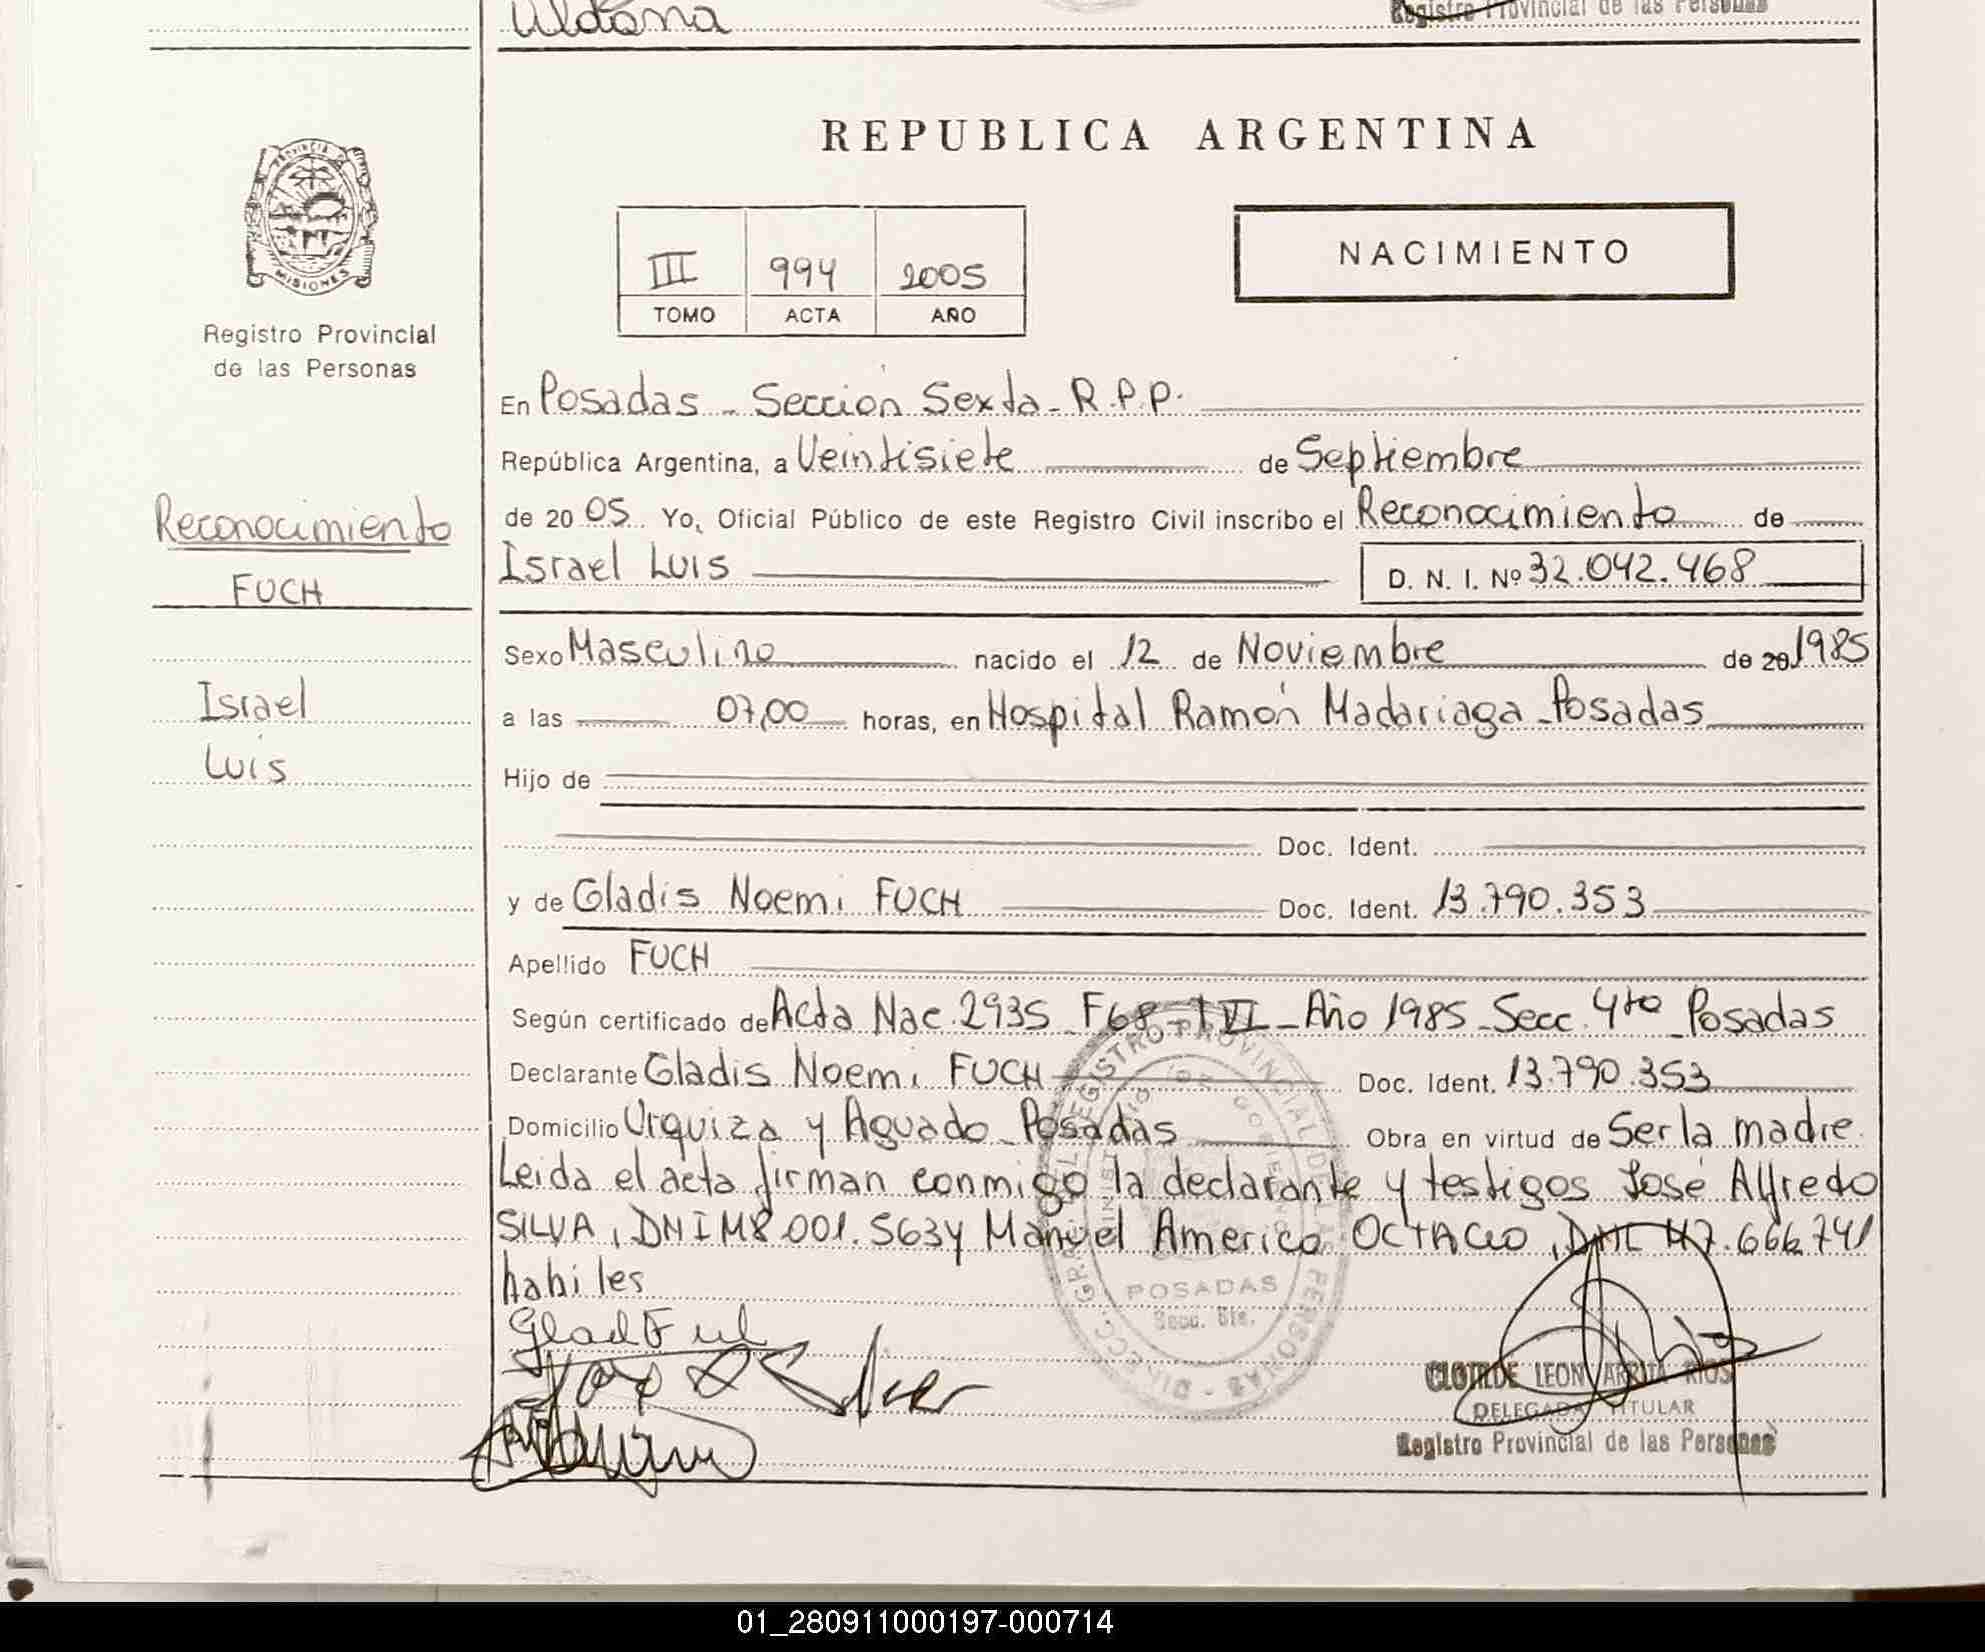 Aldana
Registro Provincial de las Personas
REPUBLICA ARGENTINA
PROVINCIA DE
MISIONES
Registro Provincial
de las Personas
III 994 2005
TOMO ACTA AÑO
NACIMIENTO
En Posadas - Sección Sexta - R.P.P.
República Argentina, a Veintisiete de Septiembre
de 20 05 Yo, Oficial Público de este Registro Civil inscribo el Reconocimiento de
Israel Luis D. N. I. Nº 32.042.468
Reconocimiento
FUCH
Israel
Luis
Sexo Masculino nacido el 12 de Noviembre de 20 1985
a las 07,00 horas, en Hospital Ramón Madariaga - Posadas
Hijo de
Doc. Ident.
y de Gladis Noemi FUCH Doc. Ident. 13.790.353
Apellido FUCH
Según certificado de Acta Nac. 2935 - F68 - T VI - Año 1985 - Secc. 4to - Posadas
Declarante Gladis Noemi FUCH Doc. Ident. 13.790.353
Domicilio Urquiza y Aguado - Posadas Obra en virtud de Ser la madre
Leida el acta firman conmigo la declarante y testigos José Alfredo
SILVA, DNI M8.001.563 y Manuel Americo DNI M7.666.741
habiles
POSADAS
Secc. 6ta.
CLOTILDE LEON RIOS
DELEGADA TITULAR
Registro Provincial de las Personas
01_280911000197-000714